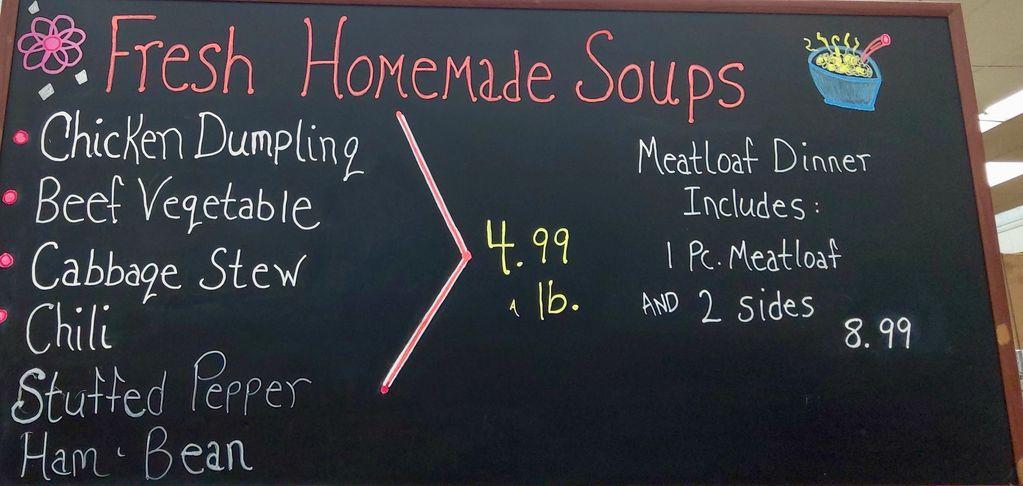 Fresh Homemade Soups
Chicken Dumpling
Beef Vegetable
Cabbage Stew
Chili
Stuffed Pepper
Ham · Bean
4.99
lb.
Meatloaf Dinner
Includes:
1 Pc. Meatloaf
AND 2 sides
8.99